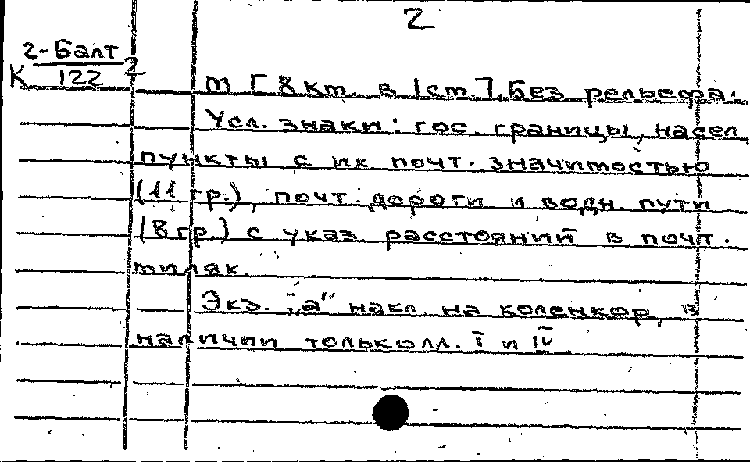 2
2-Балт
К 122 2
М [8 км. в 1 см], Без рельефа.
Усл. знаки: гос. границы, насел.
пункты с их почт. значимостью
(11 гр.), почт. дороги и водн. пути
(8 гр.) с указ. расстояний в почт.
милях.
Экз. "а" накл. на коленкор, в
наличии только лл. I и IV